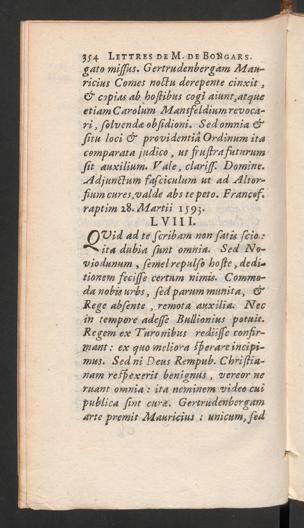 354 LETTRES DE M. DE BONGARS.
gato missus. Gertrudenbergam Mau-
ricius Comes noctu derepente cinxit,
& copias ab hostibus cogi aiunt, atque
etiam Carolum Mansfeldium revoca-
ri, solvendæ obsidioni. Sed omnia &
situ loci & providentiâ Ordinum ita
comparata judico, ut frustra futurum
sit auxilium. Vale, clariss. Domine.
Adjunctum fasciculum ut ad Altor-
fium cures, valde abs te peto. Francof.
raptim 28. Martii 1593.
LVIII.
QVid ad te scribam non satis scio:
ita dubia sunt omnia. Sed No-
viodunum, semel repulso hoste, dedi-
tionem fecisse certum nimis. Commo-
da nobis urbs, sed parum munita, &
Rege absente, remota auxilia. Nec
in tempore adesse Bullionius potuit.
Regem ex Turonibus rediisse confir-
mant: ex quo meliora sperare incipi-
mus. Sed ni Deus Rempub. Christia-
nam respexerit benignus, vereor ne
ruant omnia: ita neminem video cui
publica sint curæ. Gertrudenbergam
arte premit Mauricius: unicum, sed